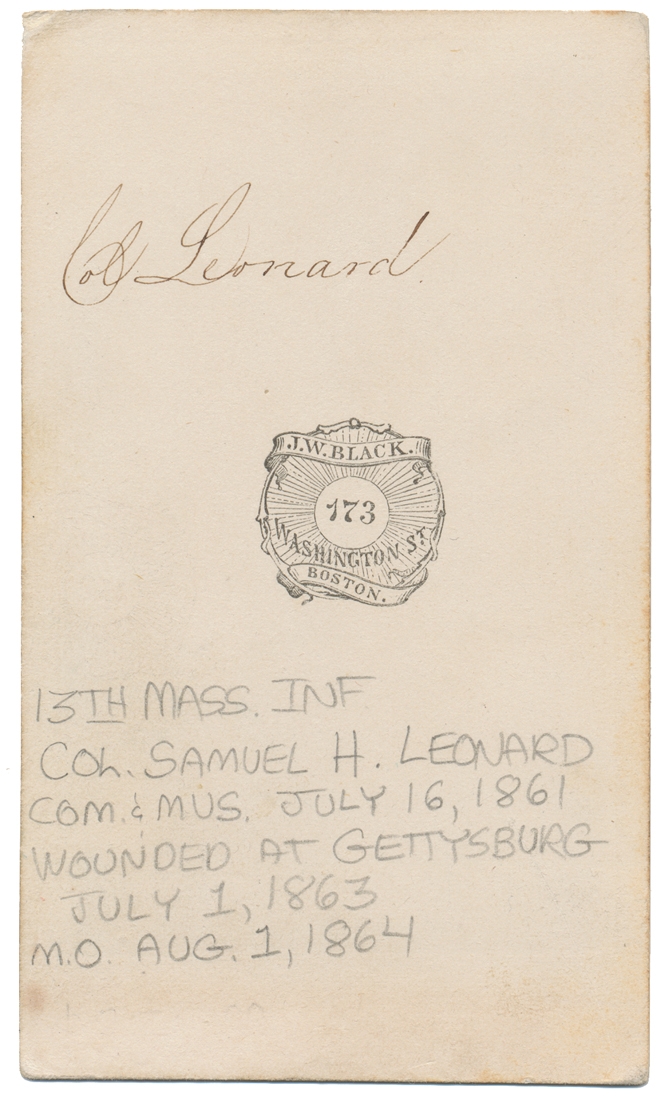 Col Leonard.
J.W. BLACK.
173
WASHINGTON ST.
BOSTON.
13TH MASS. INF
COL. SAMUEL H. LEONARD
COM. & MUS. JULY 16, 1861
WOUNDED AT GETTYSBURG
JULY 1, 1863
M.O. AUG. 1, 1864